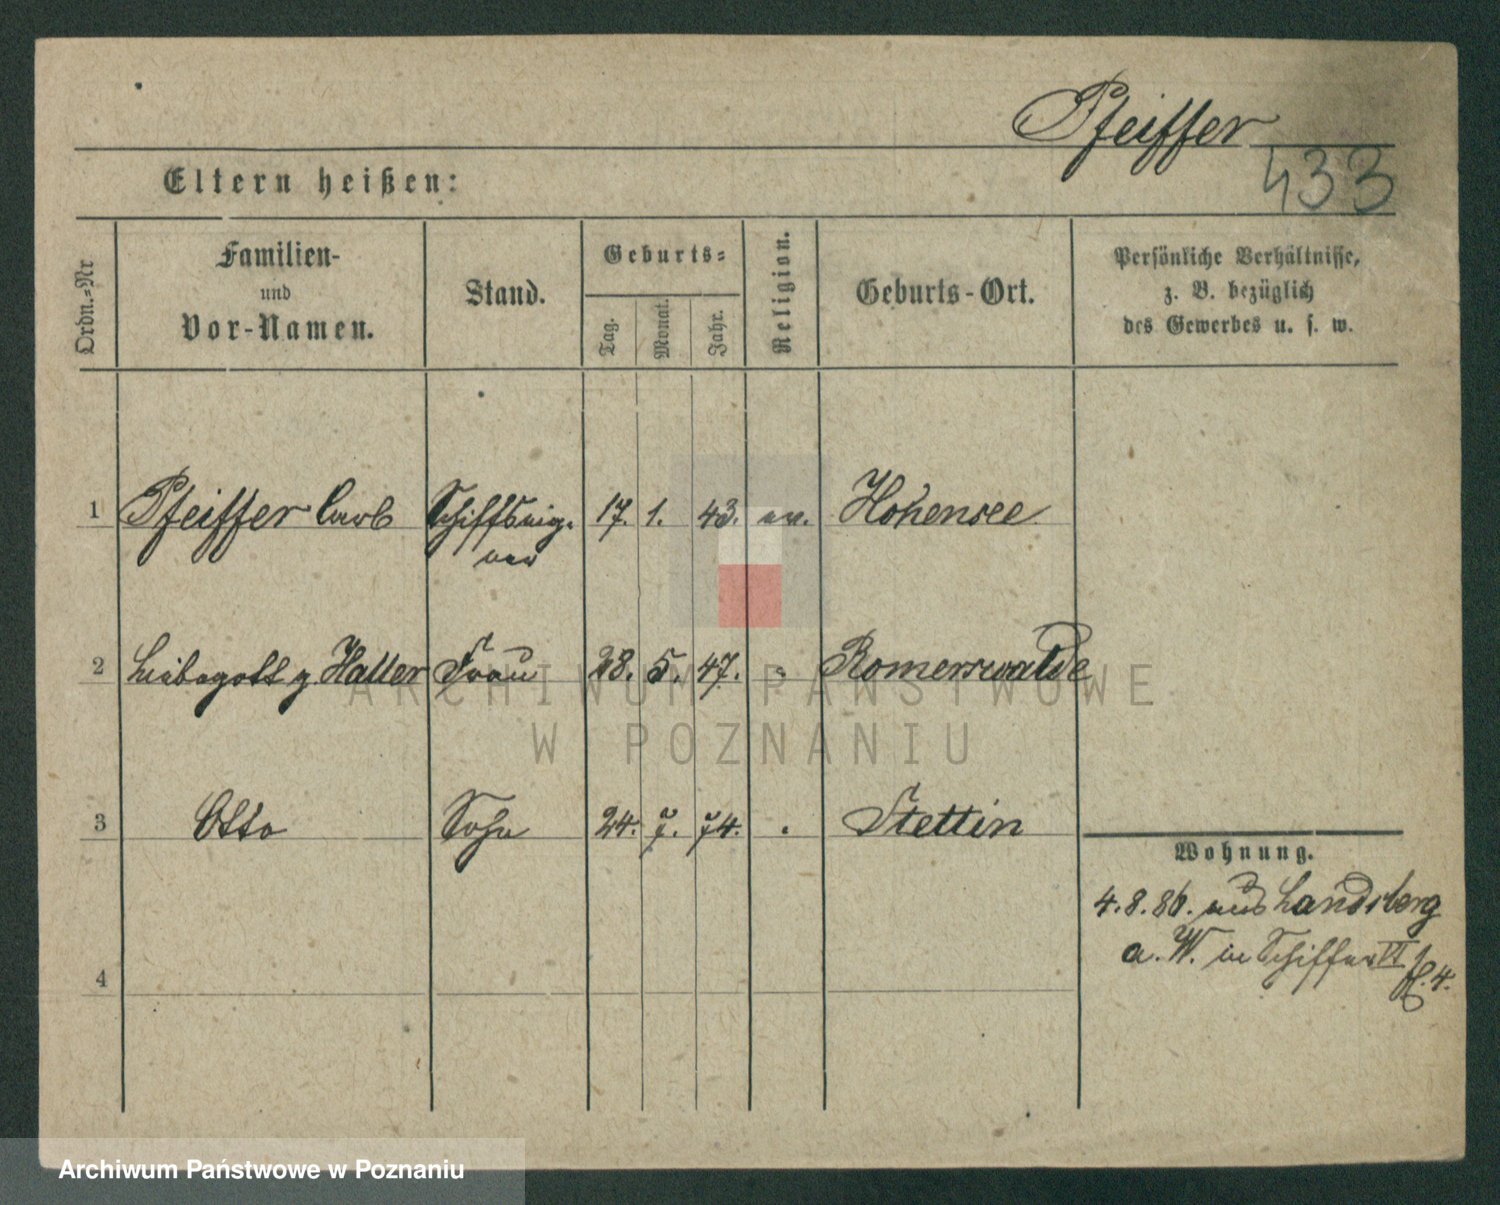 Pfeiffer
433
Eltern heißen:
Ordn.-Nr
Familien-
und
Vor-Namen.
Stand.
Geburts-
Tag.
Monat.
Jahr.
Religion.
Geburts-Ort.
Persönliche Verhältnisse,
z. B. bezüglich
des Gewerbes u. s. w.
1 Pfeiffer Carl Schiffseig- 17. 1. 43. ev. Hohensee
ner
2 Liebegott g. Haller Frau 28. 5. 47. " Romerswalde
3 Otto Sohn 24. 7. 74. " Stettin
Wohnung.
4.8.86. aus Landsberg
a. W. in Schiffer VI
4
ARCHIWUM PAŃSTWOWE
W POZNANIU
Archiwum Państwowe w Poznaniu